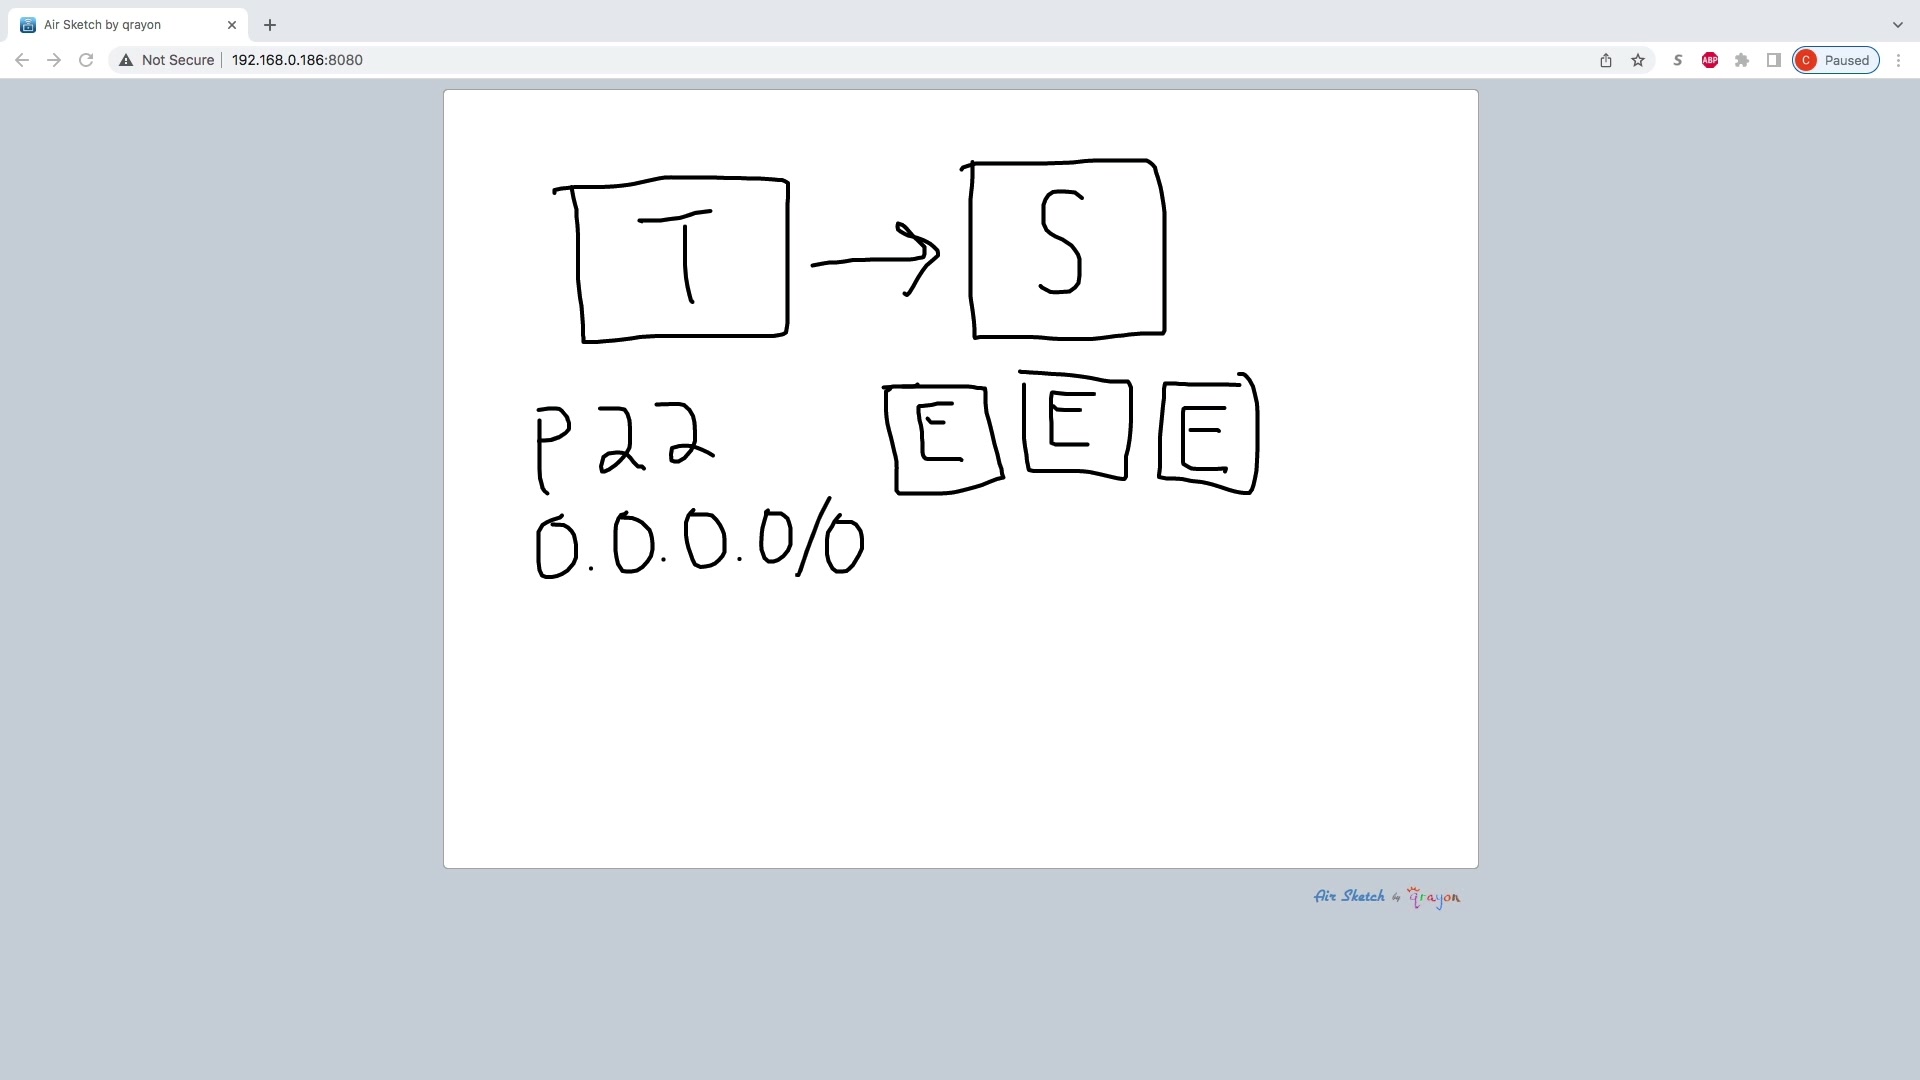 Air Sketch by qrayon
Not Secure 192.168.0.186:8080
S
ABP
C Paused
T
S
P22
E E E
0.0.0.0/0
Air Sketch by qrayon